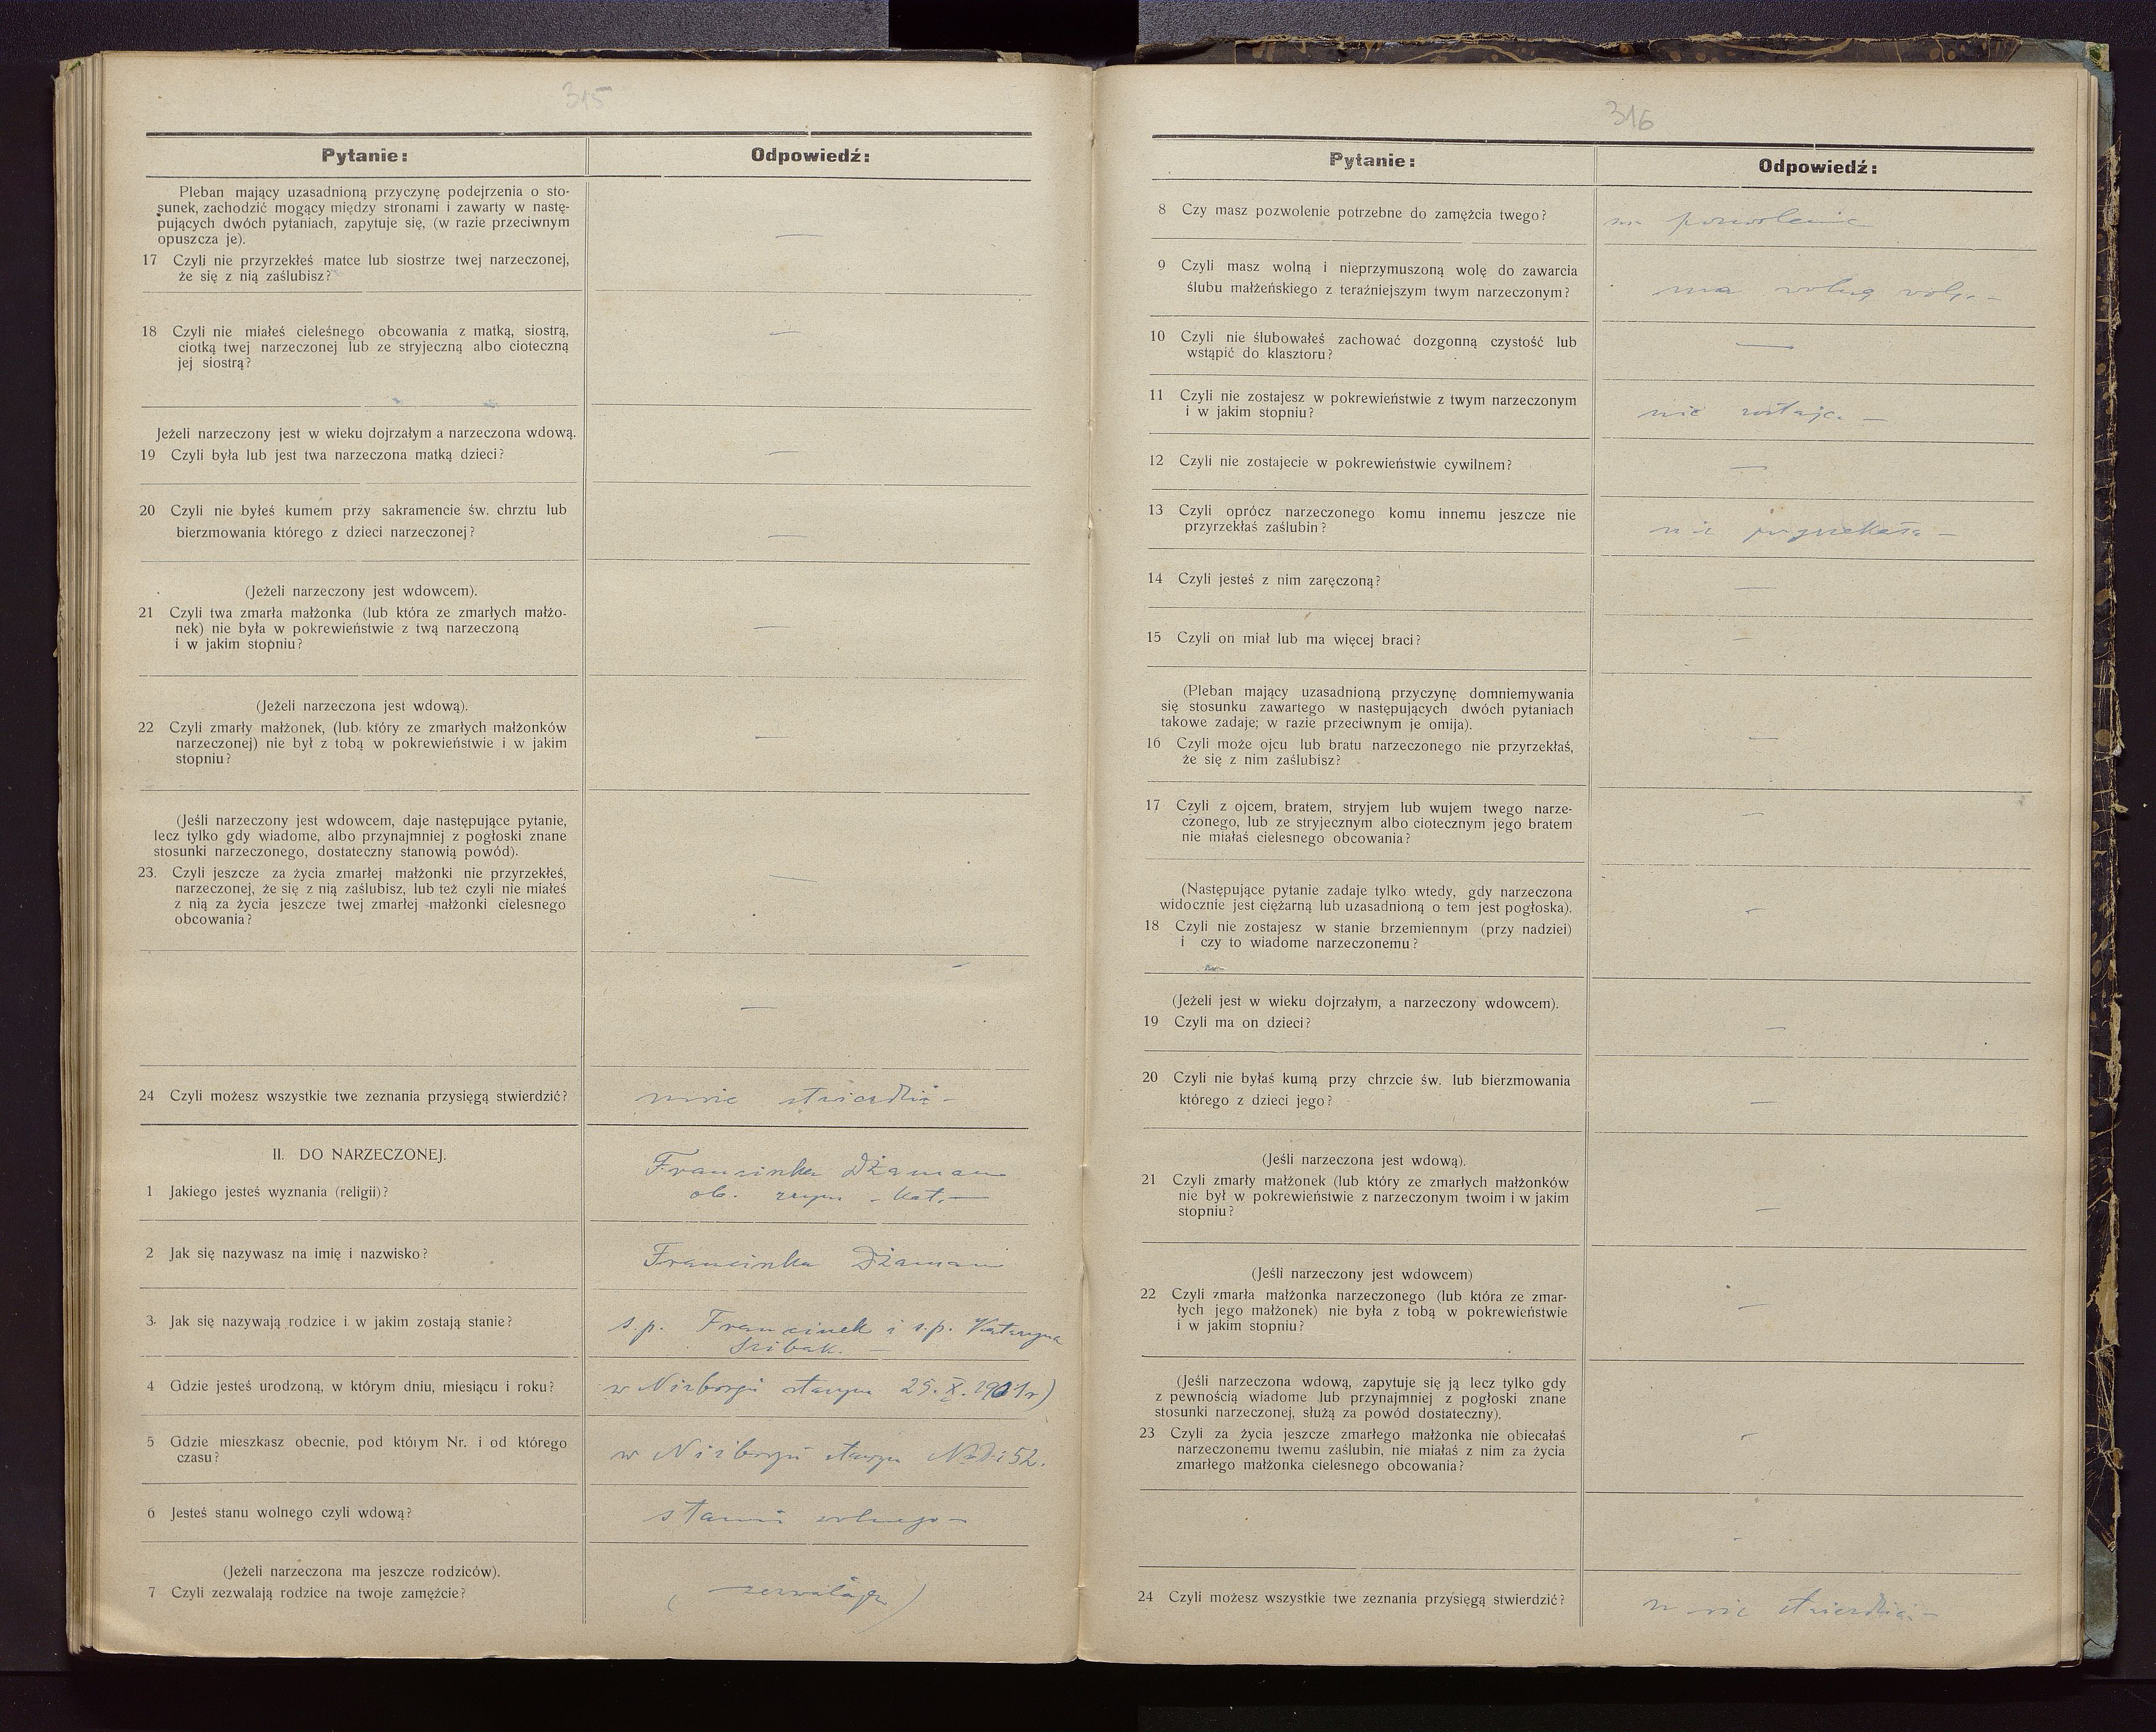 315
Pytanie:
Odpowiedź:
Pleban mający uzasadnioną przyczynę podejrzenia o sto-
sunek, zachodzić mogący między stronami i zawarty w nastę-
pujących dwóch pytaniach, zapytuje się, (w razie przeciwnym
opuszcza je).
—
17 Czyli nie przyrzekłeś matce lub siostrze twej narzeczonej,
że się z nią zaślubisz?
18 Czyli nie miałeś cieleśnego obcowania z matką, siostrą,
ciotką twej narzeczonej lub ze stryjeczną albo cioteczną
jej siostrą?
—
Jeżeli narzeczony jest w wieku dojrzałym a narzeczona wdową.
19 Czyli była lub jest twa narzeczona matką dzieci?
—
20 Czyli nie byłeś kumem przy sakramencie św. chrztu lub
bierzmowania którego z dzieci narzeczonej?
—
(Jeżeli narzeczony jest wdowcem).
21 Czyli twa zmarła małżonka (lub która ze zmarłych małżo-
nek) nie była w pokrewieństwie z twą narzeczoną
i w jakim stopniu?
—
(Jeżeli narzeczona jest wdową).
22 Czyli zmarły małżonek, (lub który ze zmarłych małżonków
narzeczonej) nie był z tobą w pokrewieństwie i w jakim
stopniu?
—
(Jeśli narzeczony jest wdowcem, daje następujące pytanie,
lecz tylko gdy wiadome, albo przynajmniej z pogłoski znane
stosunki narzeczonego, dostateczny stanowią powód).
23. Czyli jeszcze za życia zmarłej małżonki nie przyrzekłeś,
narzeczonej, że się z nią zaślubisz, lub też czyli nie miałeś
z nią za życia jeszcze twej zmarłej małżonki cielesnego
obcowania?
—
—
24 Czyli możesz wszystkie twe zeznania przysięgą stwierdzić?
może stwierdzić –
II. DO NARZECZONEJ.
1 Jakiego jesteś wyznania (religii)?
Franciszka Dżaman
ob. rzym - kat. —
2 Jak się nazywasz na imię i nazwisko?
Franciszka Dżaman
3. Jak się nazywają rodzice i w jakim zostają stanie?
s.p. Franciszek i s.p. Katarzyna
4 Gdzie jesteś urodzoną, w którym dniu, miesiącu i roku?
w Niżborgu starym 25. X. 1901 r)
5 Gdzie mieszkasz obecnie, pod którym Nr. i od którego
czasu?
w Niżborgu starym 52.
6 Jesteś stanu wolnego czyli wdową?
stanu wolnego –
(Jeżeli narzeczona ma jeszcze rodziców).
7 Czyli zezwalają rodzice na twoje zamęźcie?
( zezwalają )
316
Pytanie:
Odpowiedź:
8 Czy masz pozwolenie potrzebne do zamężcia twego?
ma pozwolenie
9 Czyli masz wolną i nieprzymuszoną wolę do zawarcia
ślubu małżeńskiego z teraźniejszym twym narzeczonym?
ma wolną wolę –
10 Czyli nie ślubowałeś zachować dozgonną czystość lub
wstąpić do klasztoru?
—
11 Czyli nie zostajesz w pokrewieństwie z twym narzeczonym
i w jakim stopniu?
nie zostaje –
12 Czyli nie zostajecie w pokrewieństwie cywilnem?
—
13 Czyli oprócz narzeczonego komu innemu jeszcze nie
przyrzekłaś zaślubin?
nie przyrzekała –
14 Czyli jesteś z nim zaręczoną?
—
15 Czyli on miał lub ma więcej braci?
—
(Pleban mający uzasadnioną przyczynę domniemywania
się stosunku zawartego w następujących dwóch pytaniach
takowe zadaje; w razie przeciwnym je omija).
16 Czyli może ojcu lub bratu narzeczonego nie przyrzekłaś,
że się z nim zaślubisz?
—
17 Czyli z ojcem, bratem, stryjem lub wujem twego narze-
czonego, lub ze stryjecznym albo ciotecznym jego bratem
nie miałaś cielesnego obcowania?
—
(Następujące pytanie zadaje tylko wtedy, gdy narzeczona
widocznie jest ciężarną lub uzasadnioną o tem jest pogłoska).
18 Czyli nie zostajesz w stanie brzemiennym (przy nadziei)
i czy to wiadome narzeczonemu?
—
(Jeżeli jest w wieku dojrzałym, a narzeczony wdowcem).
19 Czyli ma on dzieci?
—
20 Czyli nie byłaś kumą przy chrzcie św. lub bierzmowania
którego z dzieci jego?
—
(Jeśli narzeczona jest wdową).
21 Czyli zmarły małżonek (lub który ze zmarłych małżonków
nie był w pokrewieństwie z narzeczonym twoim i w jakim
stopniu?
—
(Jeśli narzeczony jest wdowcem)
22 Czyli zmarła małżonka narzeczonego (lub która ze zmar-
łych jego małżonek) nie była z tobą w pokrewieństwie
i w jakim stopniu?
—
(Jeśli narzeczona wdową, zapytuje się ją lecz tylko gdy
z pewnością wiadome lub przynajmniej z pogłoski znane
stosunki narzeczonej, służą za powód dostateczny).
23 Czyli za życia jeszcze zmarłego małżonka nie obiecałaś
narzeczonemu twemu zaślubin, nie miałaś z nim za życia
zmarłego małżonka cielesnego obcowania?
—
24 Czyli możesz wszystkie twe zeznania przysięgą stwierdzić?
może stwierdzić –